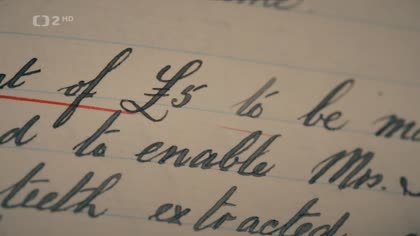 2 HD
me.
of £5 to be
to enable Mrs.
teeth extracted